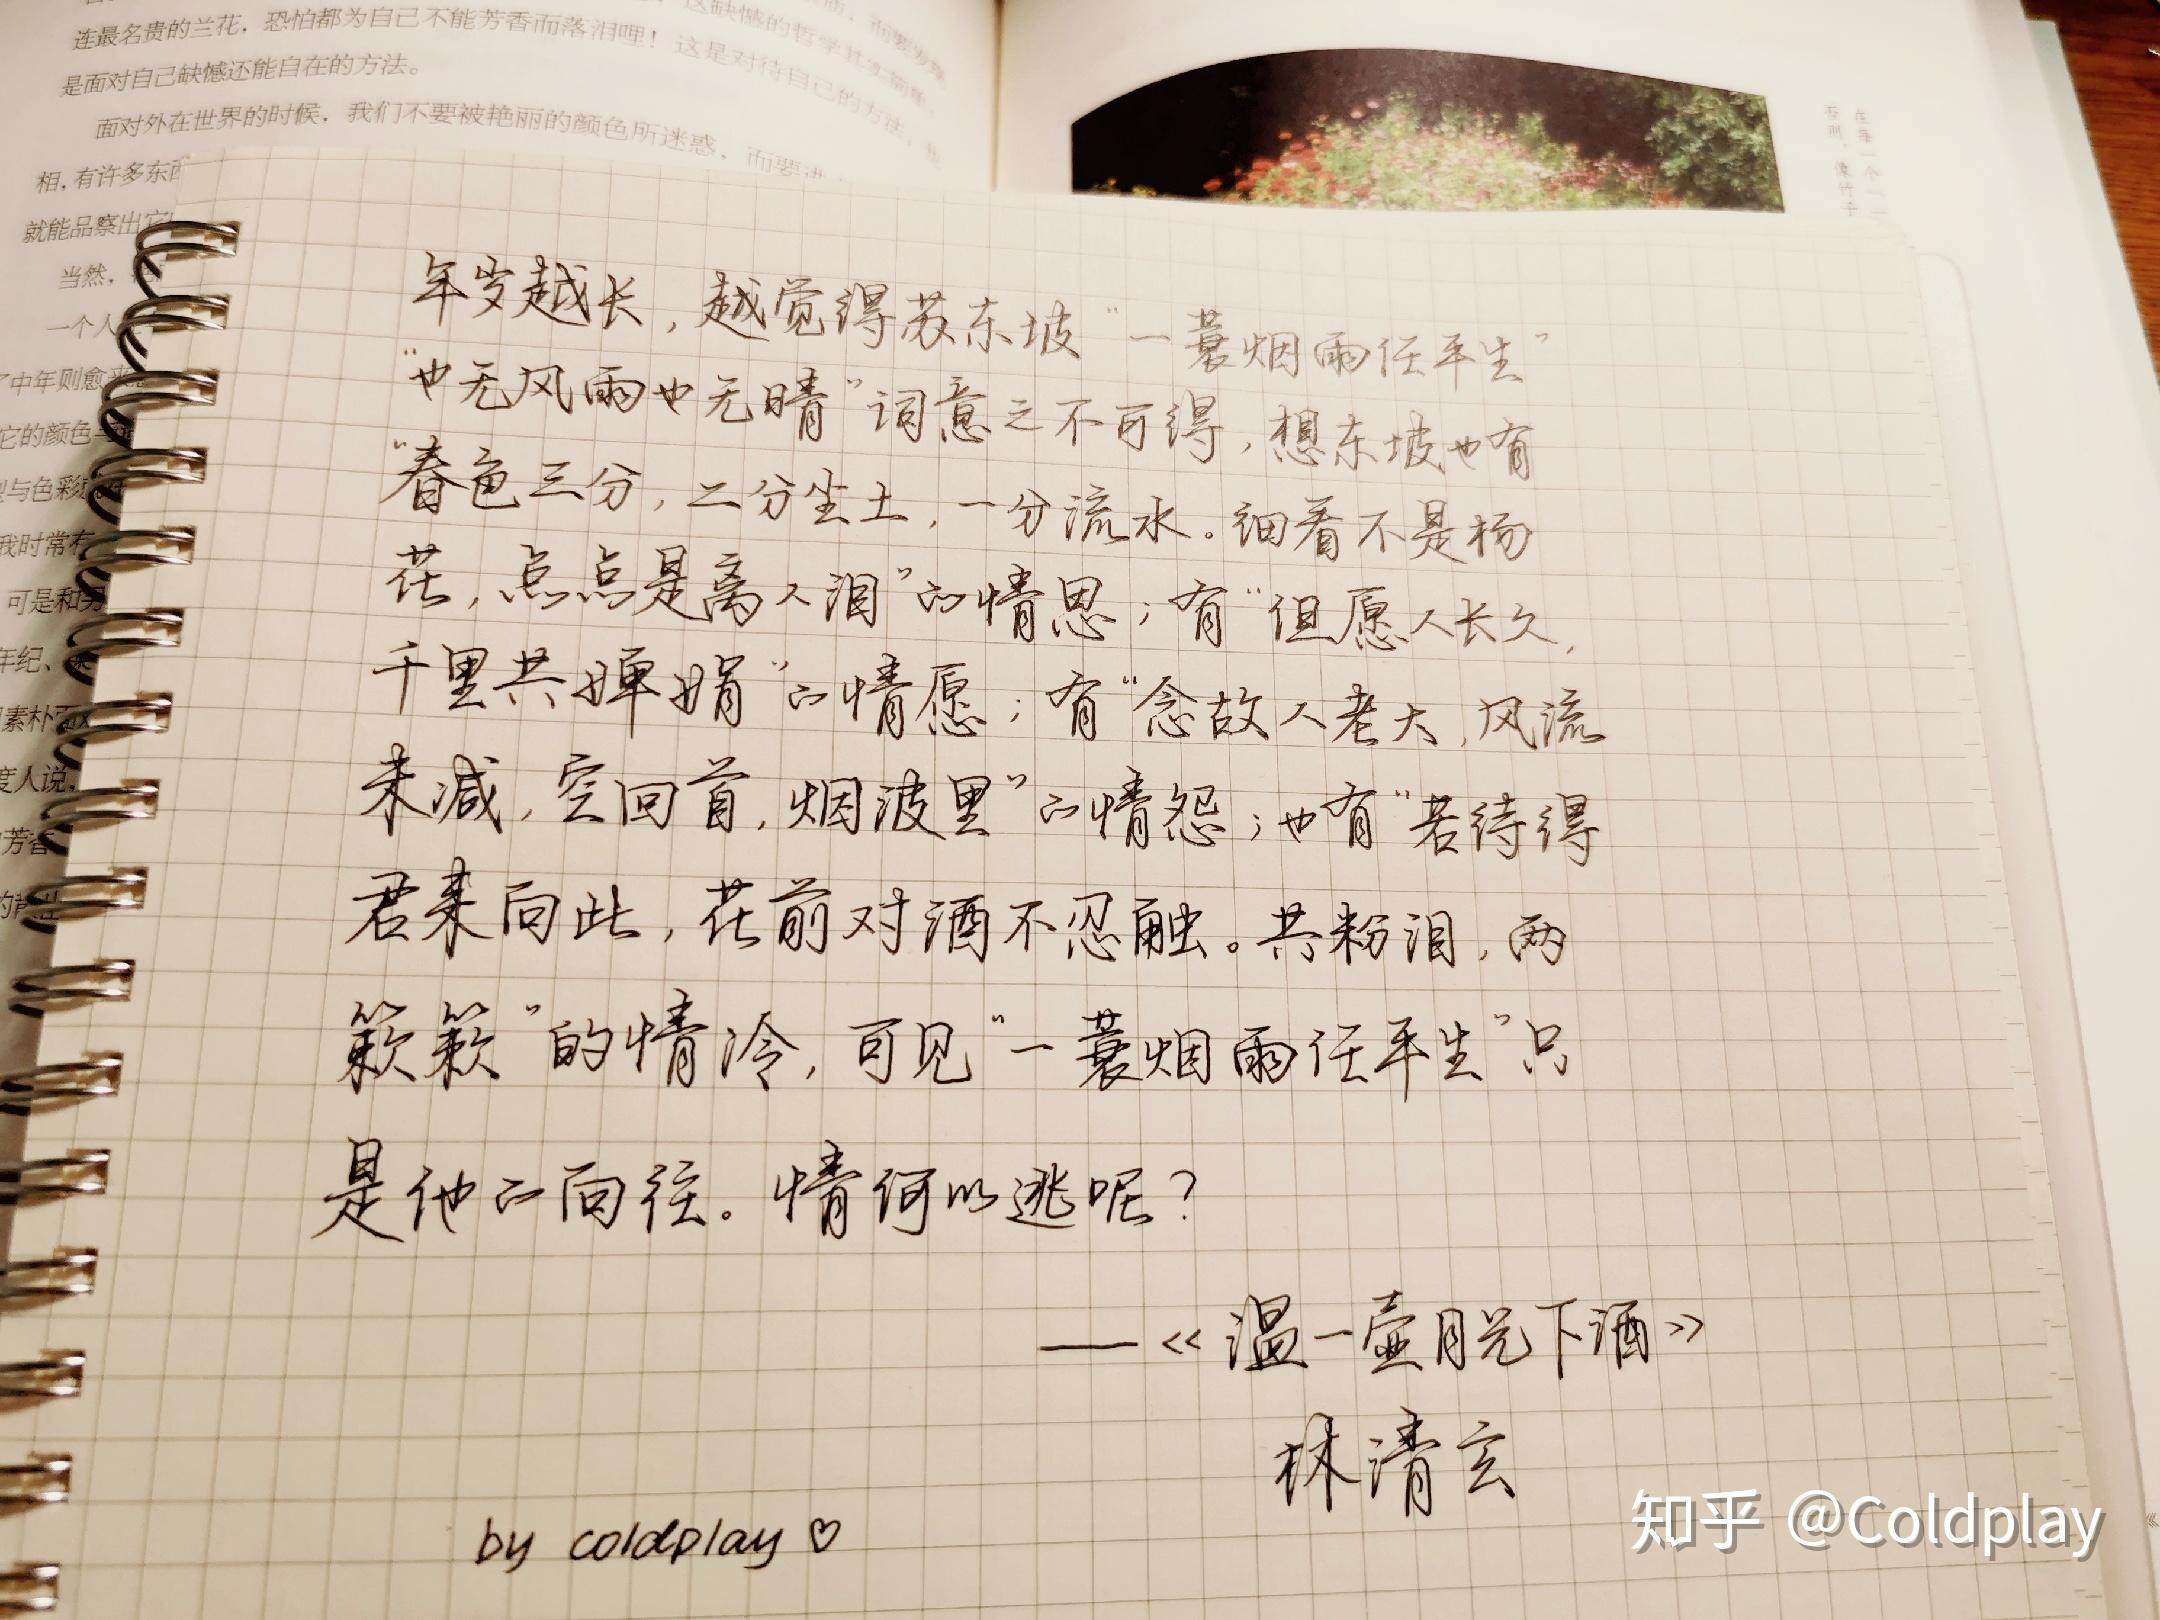 连最名贵的兰花，恐怕都为自己不能芳香而落泪哩！这是对待自己的方法，
是面对自己缺憾还能自在的方法。
面对外在世界的时候，我们不要被艳丽的颜色所迷惑，而要
相，有许多东西
就能品察出它
当然，
一个人
年岁越长，越觉得苏东坡“一蓑烟雨任平生”
“也无风雨也无晴”词意之不可得，想东坡也有
“春色三分，二分尘土，一分流水。细看不是杨
花，点点是离人泪”的情思；有“但愿人长久，
千里共婵娟”的情愿；有“念故人老大，风流
未减，空回首，烟波里”的情怨；也有“若待得
君来向此，花前对酒不忍触。共粉泪，两
簌簌”的情冷，可见“一蓑烟雨任平生”只
是他的向往。情何以逃呢？
——《温一壶月光下酒》
林清玄
by coldplay ♡
知乎 @Coldplay